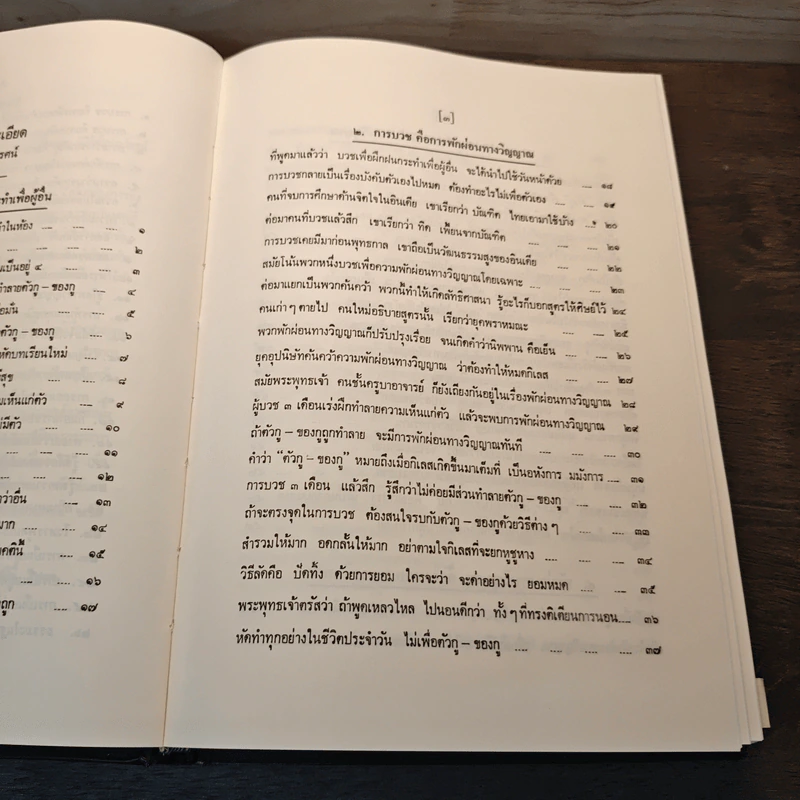 เอียด
รศน์
ะทำเพื่อผู้อื่น
ว้าในห้อง .... .... .... ๑
.... .... .... .... ๒
มเป็นอยู่ ๔ .... .... ๓
ทำลายตัวกู – ของกู .... ๔
.... .... ๕
ตัวกู – ของกู .... .... ๖
หัดบทเรียนใหม่ .... ๗
.... .... ๘
มเห็นแก่ตัว .... ๙
.... .... ๑๐
.... .... .... ๑๑
.... .... .... ๑๒
กว่าอื่น .... .... ๑๓
มาก .... .... .... ๑๔
.... .... ๑๕
.... .... .... ๑๖
ถูก .... .... ๑๗
[๓]
๒. การบวช คือการพักผ่อนทางวิญญาณ
ที่พูดมาแล้วว่า บวชเพื่อฝึกฝนกระทำเพื่อผู้อื่น จะได้นำไปใช้วันหน้าด้วย .... ๑๘
การบวชกลายเป็นเรื่องบังคับตัวเองไปหมด ต้องทำอะไรไม่เพื่อตัวเอง .... ๑๙
คนที่จบการศึกษาด้านจิตใจในอินเดีย เขาเรียกว่า บัณฑิต ไทยเอามาใช้บ้าง .... ๒๐
ต่อมาคนที่บวชแล้วสึก เขาเรียกว่า ทิด เพี้ยนจากบัณฑิต .... .... .... ๒๑
การบวชเคยมีมาก่อนพุทธกาล เขาถือเป็นวัฒนธรรมสูงของอินเดีย .... .... ๒๒
สมัยโน้นพวกหนึ่งบวชเพื่อความพักผ่อนทางวิญญาณโดยเฉพาะ .... .... ๒๓
ต่อมาแยกเป็นพวกค้นคว้า พวกนี้ทำให้เกิดลัทธิศาสนา รู้อะไรก็บอกสูตรให้ศิษย์ไว้ ๒๔
คนเก่าๆ ตายไป คนใหม่อธิบายสูตรนั้น เรียกว่ายุคพราหมณะ .... .... ๒๕
พวกพักผ่อนทางวิญญาณก็ปรับปรุงเรื่อย จนเกิดคำว่านิพพาน คือเย็น .... .... ๒๖
ยุคอุปนิษัทค้นคว้าความพักผ่อนทางวิญญาณ ว่าต้องทำให้หมดกิเลส .... .... ๒๗
สมัยพระพุทธเจ้า คนชั้นครูบาอาจารย์ ก็ยังเถียงกันอยู่ในเรื่องพักผ่อนทางวิญญาณ ๒๘
ผู้บวช ๓ เดือนเร่งฝึกทำลายความเห็นแก่ตัว แล้วจะพบการพักผ่อนทางวิญญาณ ๒๙
ถ้าตัวกู – ของกูถูกทำลาย จะมีการพักผ่อนทางวิญญาณทันที .... .... .... ๓๐
คำว่า “ตัวกู – ของกู” หมายถึงเมื่อกิเลสเกิดขึ้นมาเต็มที่ เป็นอหังการ มมังการ .... ๓๑
การบวช ๓ เดือน แล้วสึก รู้สึกว่าไม่ค่อยมีส่วนทำลายตัวกู – ของกู .... .... ๓๒
ถ้าจะตรงจุดในการบวช ต้องสนใจรบกับตัวกู – ของกูด้วยวิธีต่างๆ .... .... ๓๓
สำรวมให้มาก อดกลั้นให้มาก อย่าตามใจกิเลสที่จะยกหูชูหาง .... .... ๓๔
วิธีลัดคือ ปัดทิ้ง ด้วยการยอม ใครจะว่า จะด่าอย่างไร ยอมหมด .... ๓๕
พระพุทธเจ้าตรัสว่า ถ้าพูดเหลวไหล ไปนอนดีกว่า ทั้งๆ ที่ทรงติเตียนการนอน.... ๓๖
หัดทำทุกอย่างในชีวิตประจำวัน ไม่เพื่อตัวกู – ของกู .... .... .... .... ๓๗